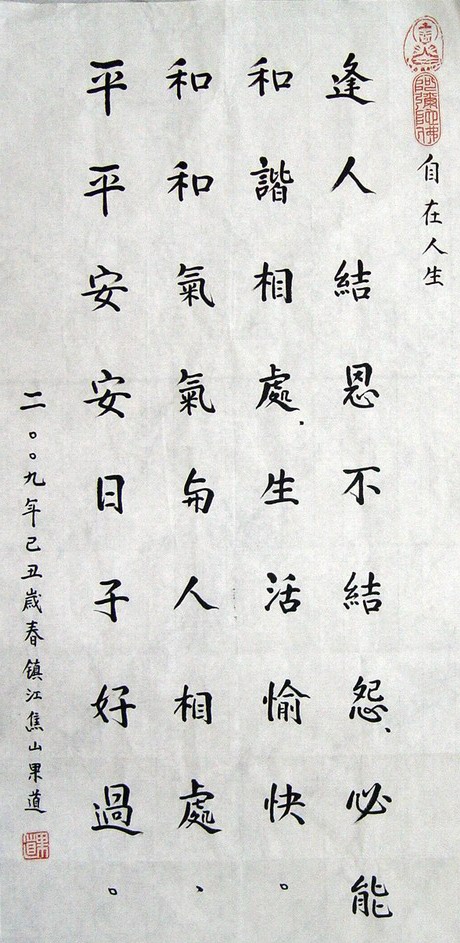 阿彌陀佛
自在人生
逢人結恩不結怨、必能
和諧相處、生活愉快。
和和氣氣与人相處、
平平安安日子好過。
二〇〇九年己丑歲春鎮江焦山果道
果道